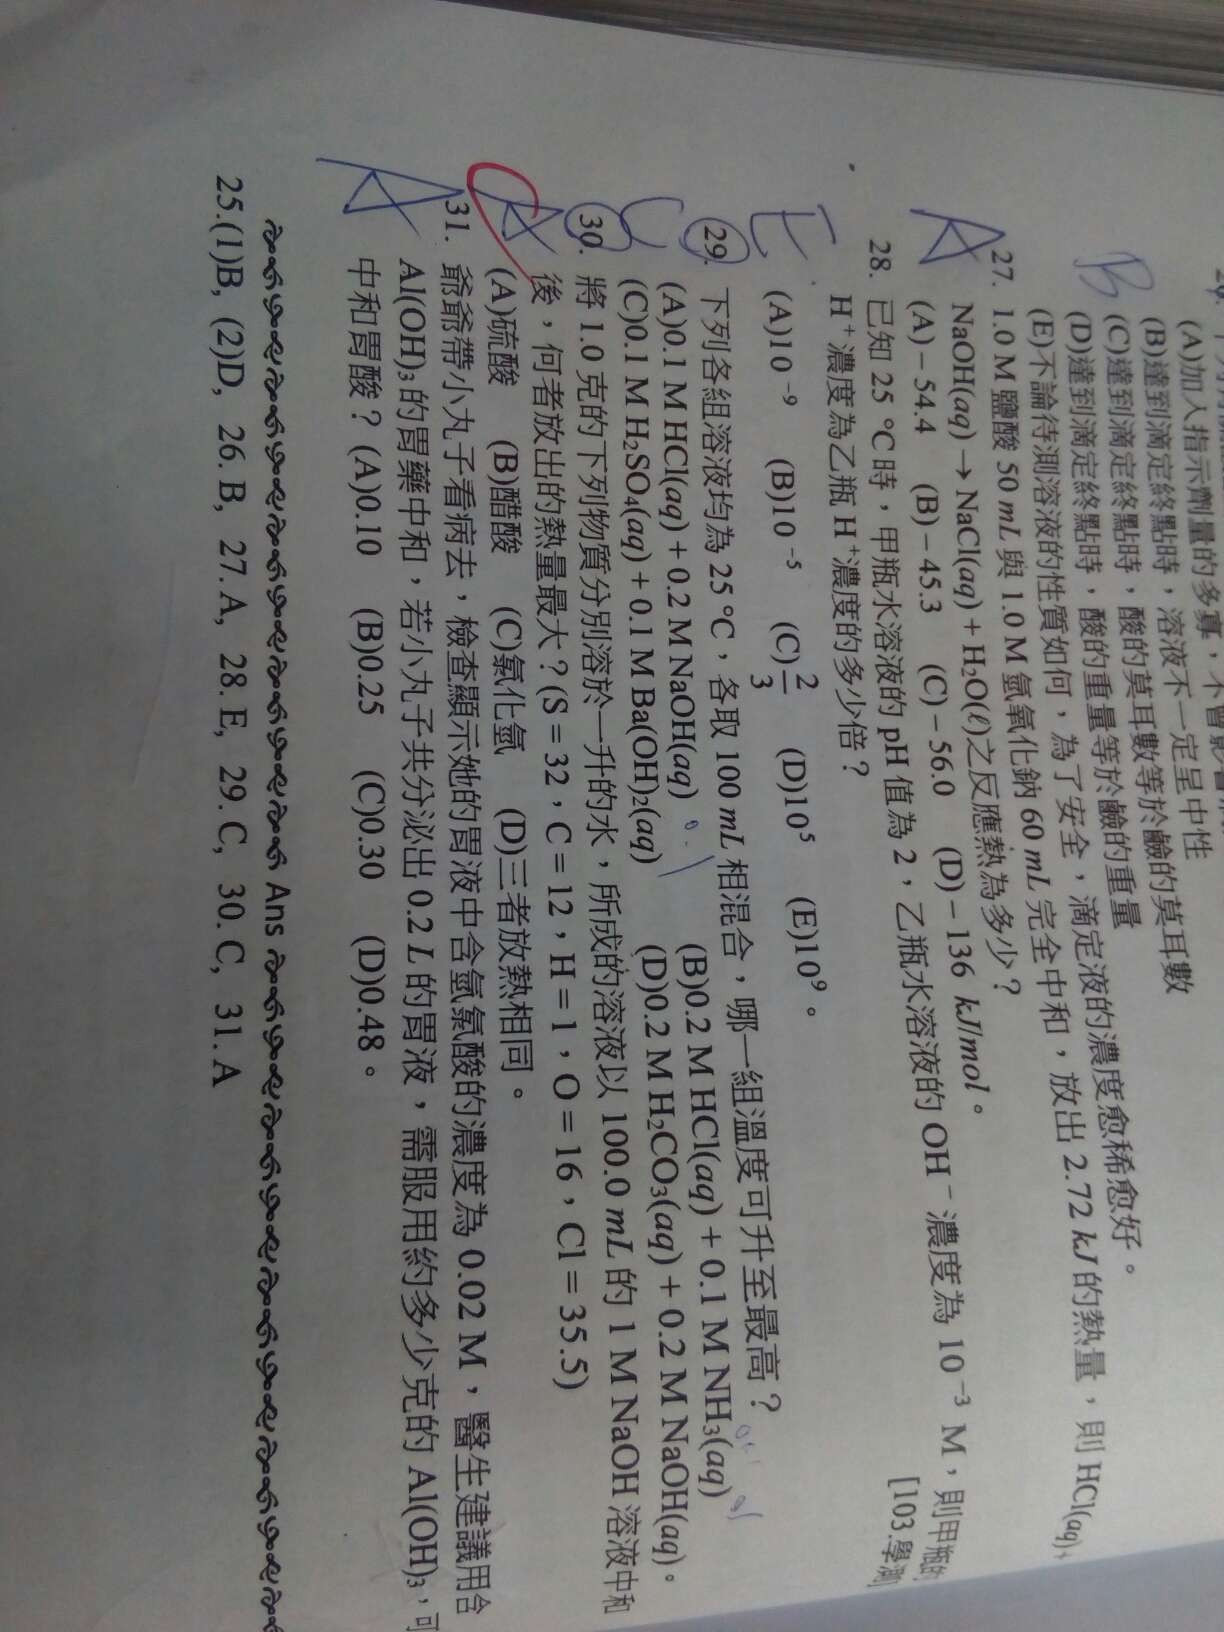 (A)加入指示劑量的多寡，不會影響
(B)達到滴定終點時，溶液不一定呈中性
(C)達到滴定終點時，酸的莫耳數等於鹼的莫耳數
(D)達到滴定終點時，酸的重量等於鹼的重量
(E)不論待測溶液的性質如何，為了安全，滴定液的濃度愈稀愈好。
B
27. 1.0 M 鹽酸 50 mL 與 1.0 M 氫氧化鈉 60 mL 完全中和，放出 2.72 kJ 的熱量，則 HCl(aq)+
NaOH(aq) → NaCl(aq) + H₂O(ℓ)之反應熱為多少？
(A) – 54.4 (B) – 45.3 (C) – 56.0 (D) – 136 kJ/mol。
A
28. 已知 25 °C 時，甲瓶水溶液的 pH 值為 2，乙瓶水溶液的 OH⁻ 濃度為 10⁻³ M，則甲瓶的
H⁺ 濃度為乙瓶 H⁺ 濃度的多少倍？
[103.學測]
(A)10⁻⁹ (B)10⁻⁵ (C)2/3 (D)10⁵ (E)10⁹。
E
29. 下列各組溶液均為 25 °C，各取 100 mL 相混合，哪一組溫度可升至最高？
(A)0.1 M HCl(aq) + 0.2 M NaOH(aq) (B)0.2 M HCl(aq) + 0.1 M NH₃(aq)
(C)0.1 M H₂SO₄(aq) + 0.1 M Ba(OH)₂(aq) (D)0.2 M H₂CO₃(aq) + 0.2 M NaOH(aq)。
C
30. 將 1.0 克的下列物質分別溶於一升的水，所成的溶液以 100.0 mL 的 1 M NaOH 溶液中和
後，何者放出的熱量最大？(S = 32，C = 12，H = 1，O = 16，Cl = 35.5)
(A)硫酸 (B)醋酸 (C)氯化氫 (D)三者放熱相同。
A
31. 爺爺帶小丸子看病去，檢查顯示她的胃液中含氫氯酸的濃度為 0.02 M，醫生建議用含
Al(OH)₃ 的胃藥中和，若小丸子共分泌出 0.2 L 的胃液，需服用約多少克的 Al(OH)₃，可
中和胃酸？ (A)0.10 (B)0.25 (C)0.30 (D)0.48。
A
Ans
25.(1)B, (2)D, 26. B, 27. A, 28. E, 29. C, 30. C, 31. A